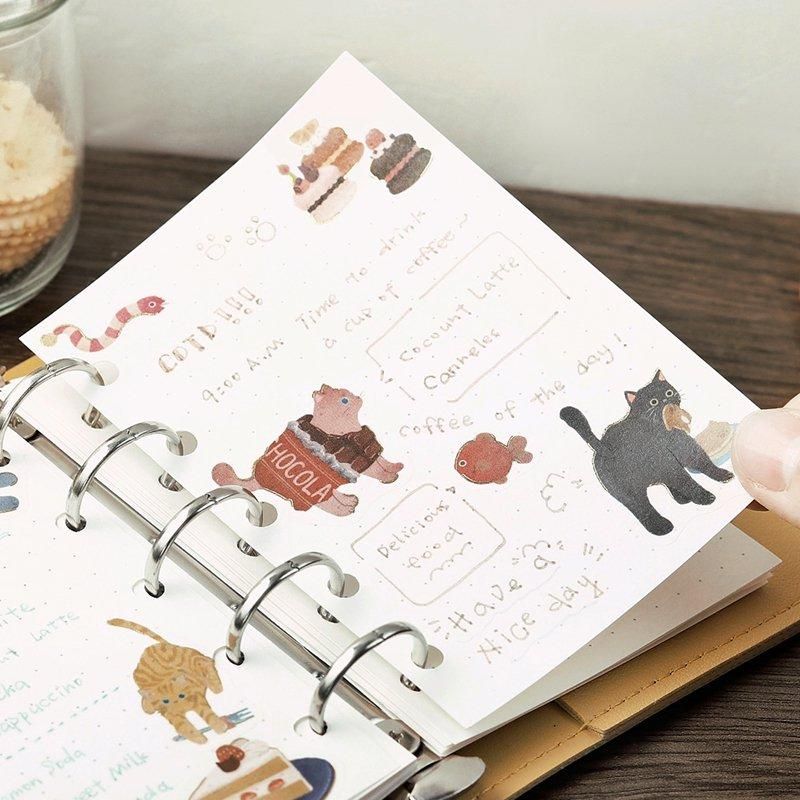 9:00 A.M
Time to drink
a cup of coffee~
Cocount Latte
Canneles
coffee of the day!
HOCOLA
Delicious
food
Have a
Nice day
Latte
appuccino
Soda
Milk